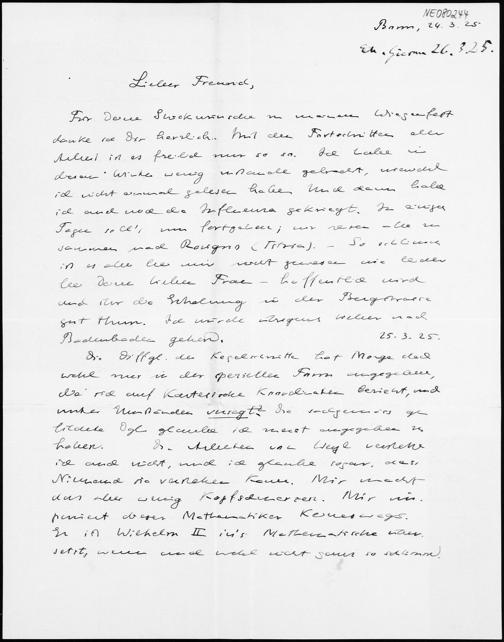 NE080244
Bonn, 24.3.25.
26.3.25.
Lieber Freund,
Für Deine Glückwünsche zu meinem Wiegenfest
danke ich Dir herzlich. Mit den Fortschritten aller
Arbeit ist es freilich nur so so. Ich habe in
diesem Winter wenig zustande gebracht, wiewohl
ich nicht einmal gelesen habe. Und dann habe
ich auch noch die Influenza gekriegt. In einigen
Tagen soll's nun fortgehen; wir reisen alle zu-
sammen nach Rovigno (Istria). – So schlimm
ist es aber bei mir nicht gewesen wie leider
bei Deiner lieben Frau – hoffentlich wird
auch ihr die Erholung in der Bergstrasse
gut thun. Ich würde übrigens lieber nach
Badenbaden gehen. 25.3.25.
Die Diffgl. der Kegelschnitte hat Monge doch
wohl nur in der speziellen Form angegeben,
die sich auf Kartesische Koordinaten bezieht, und
unter Umständen versagt? Die sachgemäss ge-
bildete Dgl glaube ich zuerst angegeben zu
haben. Die Arbeiten von Weyl verstehe
ich auch nicht, und ich glaube sogar, dass
Niemand sie verstehen kann. Mir macht
das aber wenig Kopfschmerzen. Mir im-
poniert dieser Mathematiker keineswegs.
Er ist Wilhelm II in's Mathematische über-
setzt, wenn auch wohl nicht ganz so schlimm.